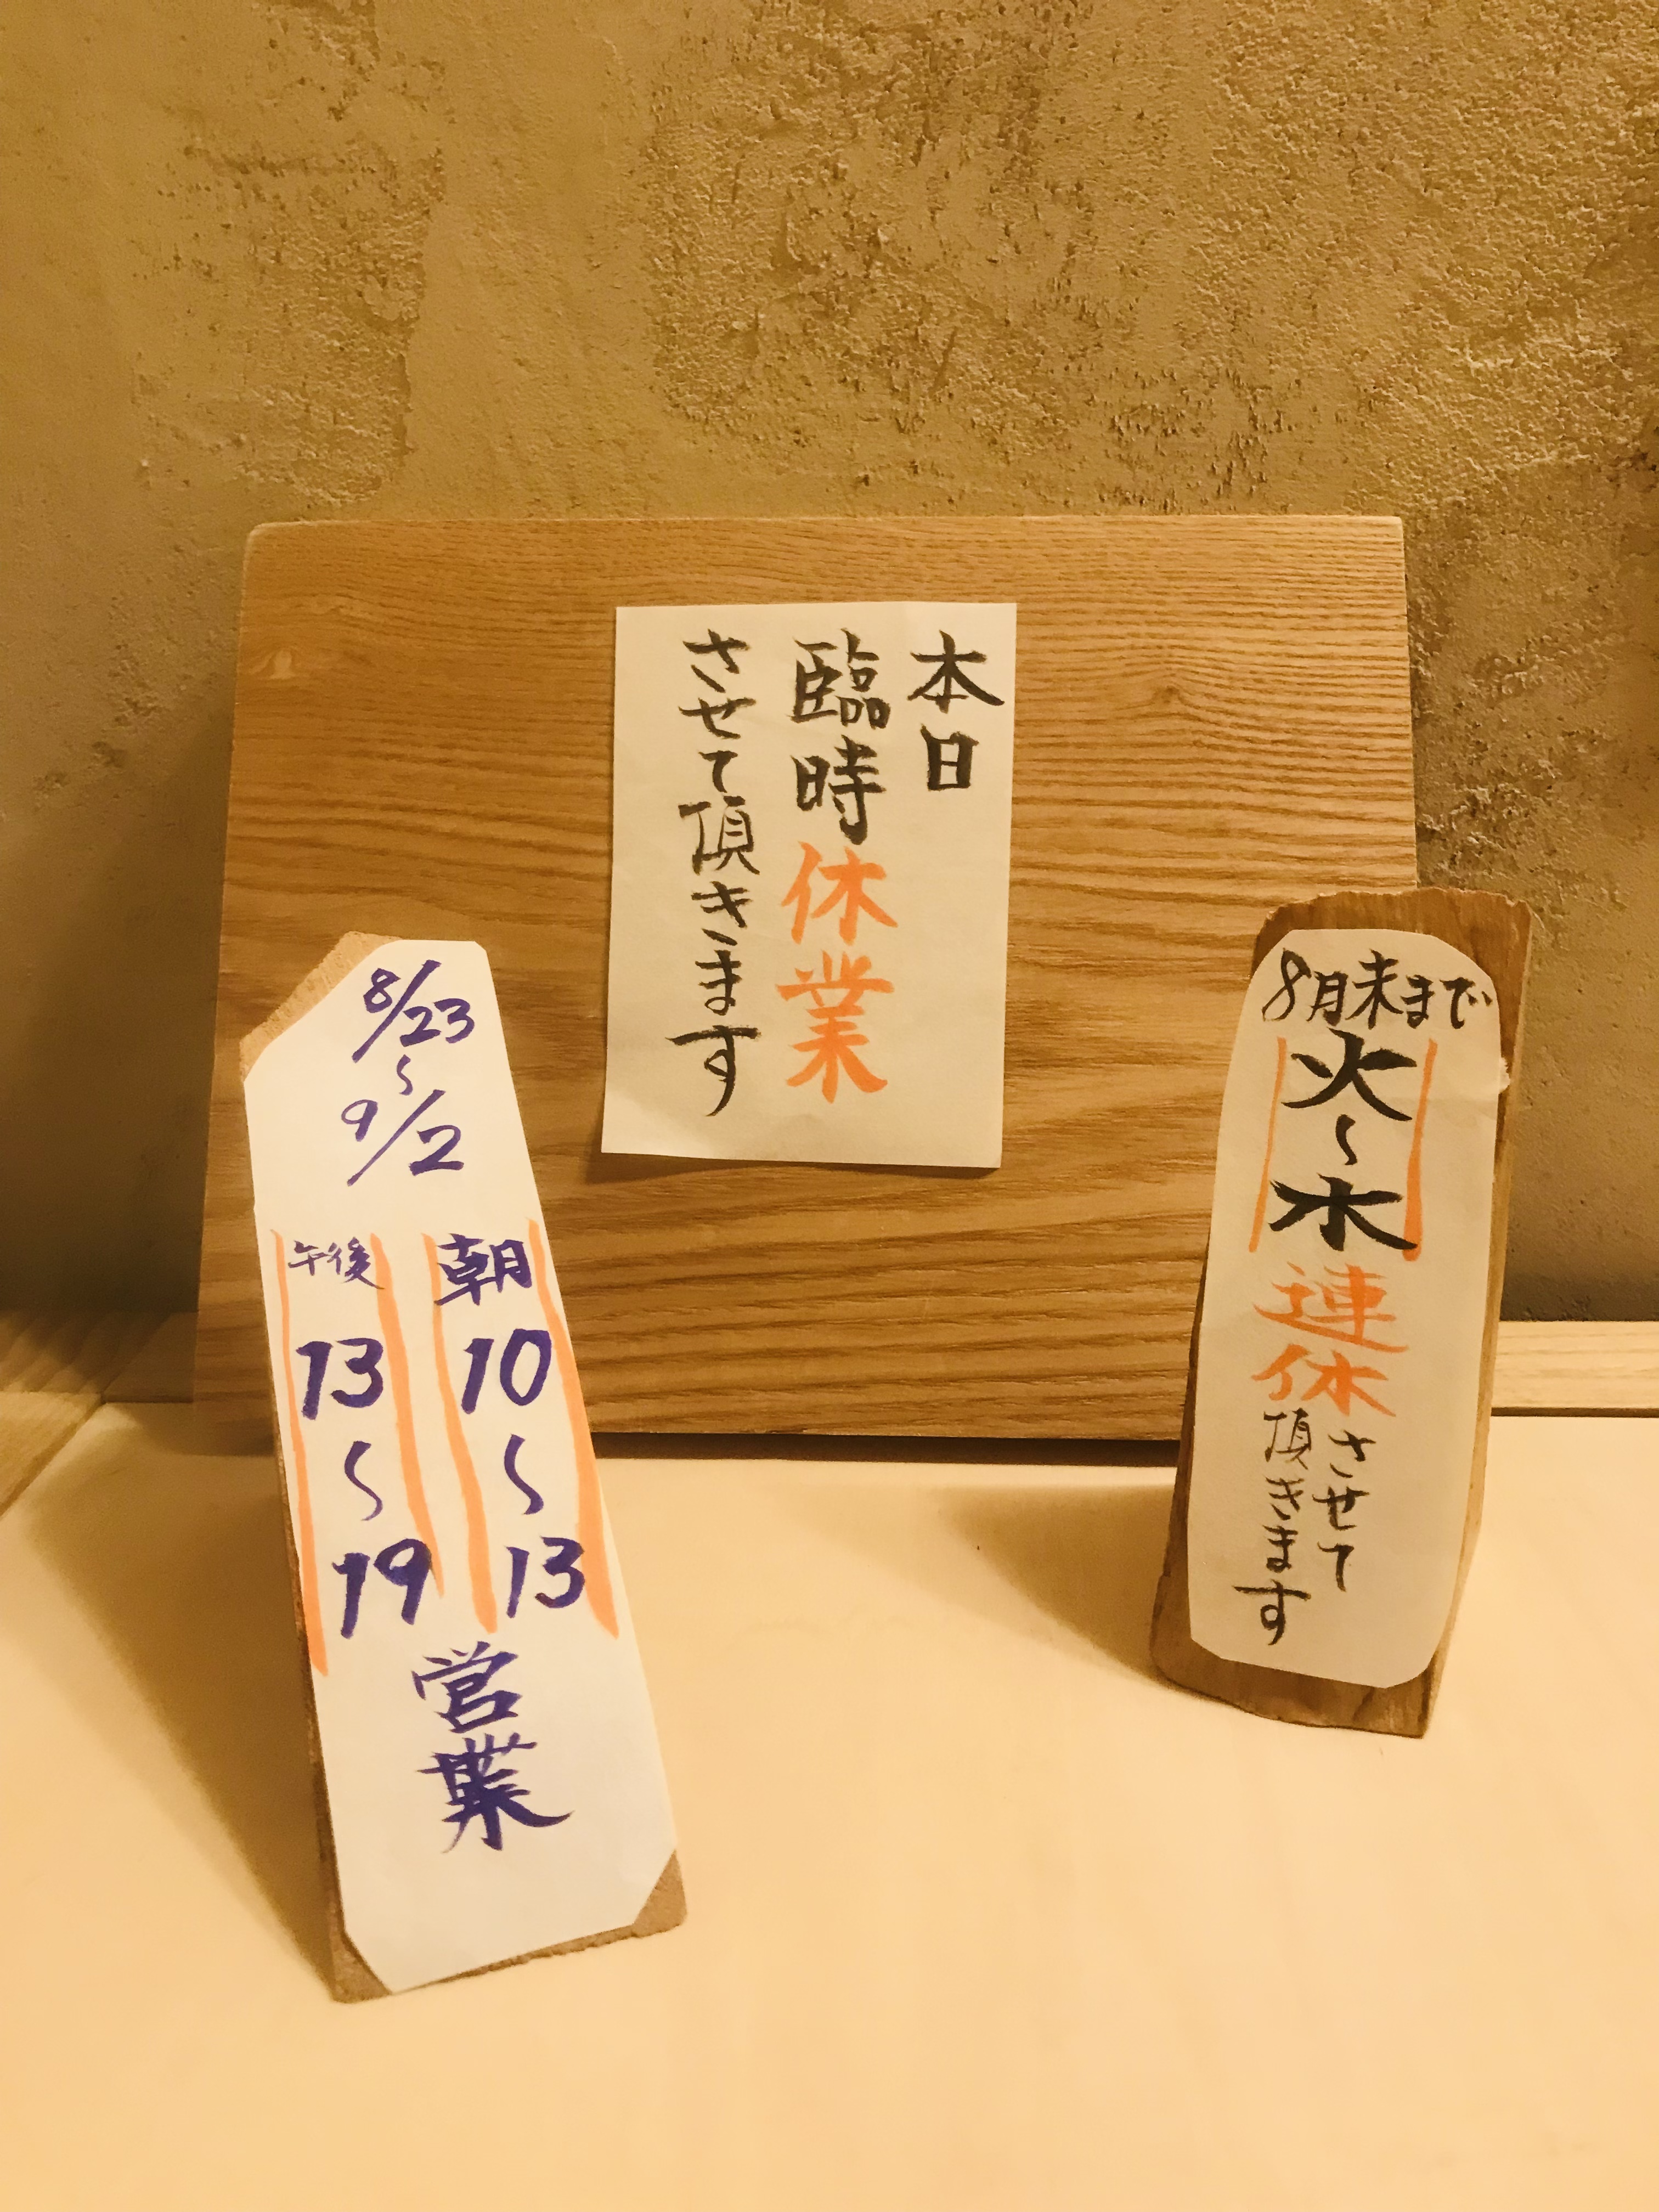 本日
臨時休業
させて頂きます
8/23
〜
9/2
朝
10
〜
13
午後
13
〜
19
営業
8月末まで
火〜木
連休
させて
頂きます